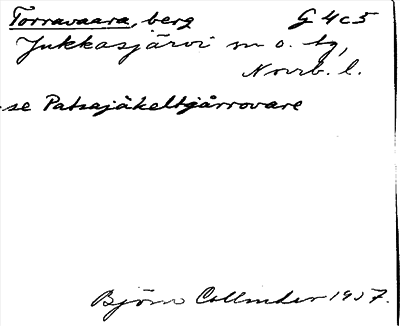 Torravaara, berg G 4c5
Jukkasjärvi sn o. tg,
Norrb. l.
se Patsajåkeltjårrovare
Björn Collinder 1937.